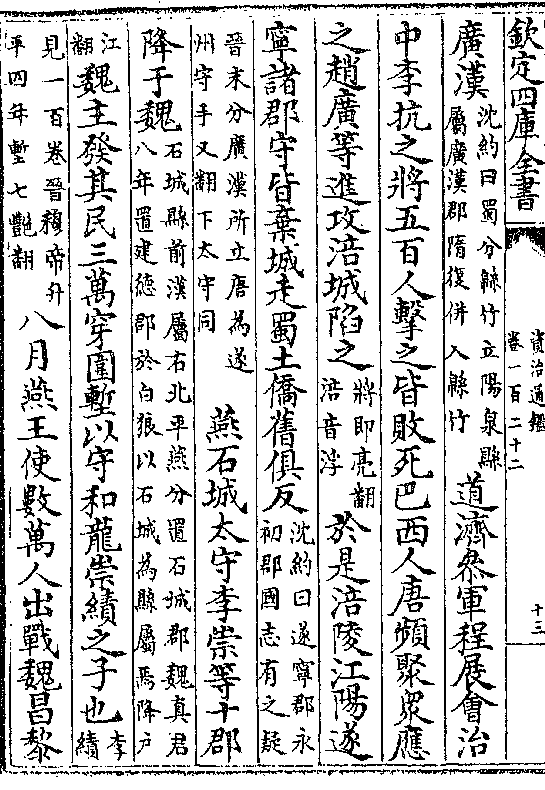 欽定四庫全書
資治通鑑
卷一百二十二
十三
廣漢
沈約曰蜀分緜竹立陽泉縣
屬廣漢郡隋復併入緜竹
道濟叅軍程展會治
中李抗之將五百人擊之皆敗死巴西人唐頻聚眾應
之趙廣等進攻涪城陷之
將即亮翻
涪音浮
於是涪陵江陽遂
寧諸郡守皆棄城走蜀土僑舊俱反
沈約曰遂寧郡永
初郡國志有之疑
晉末分廣漢所立唐為遂
州守手又翻下太守同
燕石城太守李崇等十郡
降于魏
石城縣前漢屬右北平燕分置石城郡魏真君
八年置建德郡於白狼以石城為縣屬焉降户
江
翻
魏主發其民三萬穿圍塹以守和龍崇績之子也
李
績
見一百卷晉穆帝升
平四年塹七豔翻
八月燕王使數萬人出戰魏昌黎